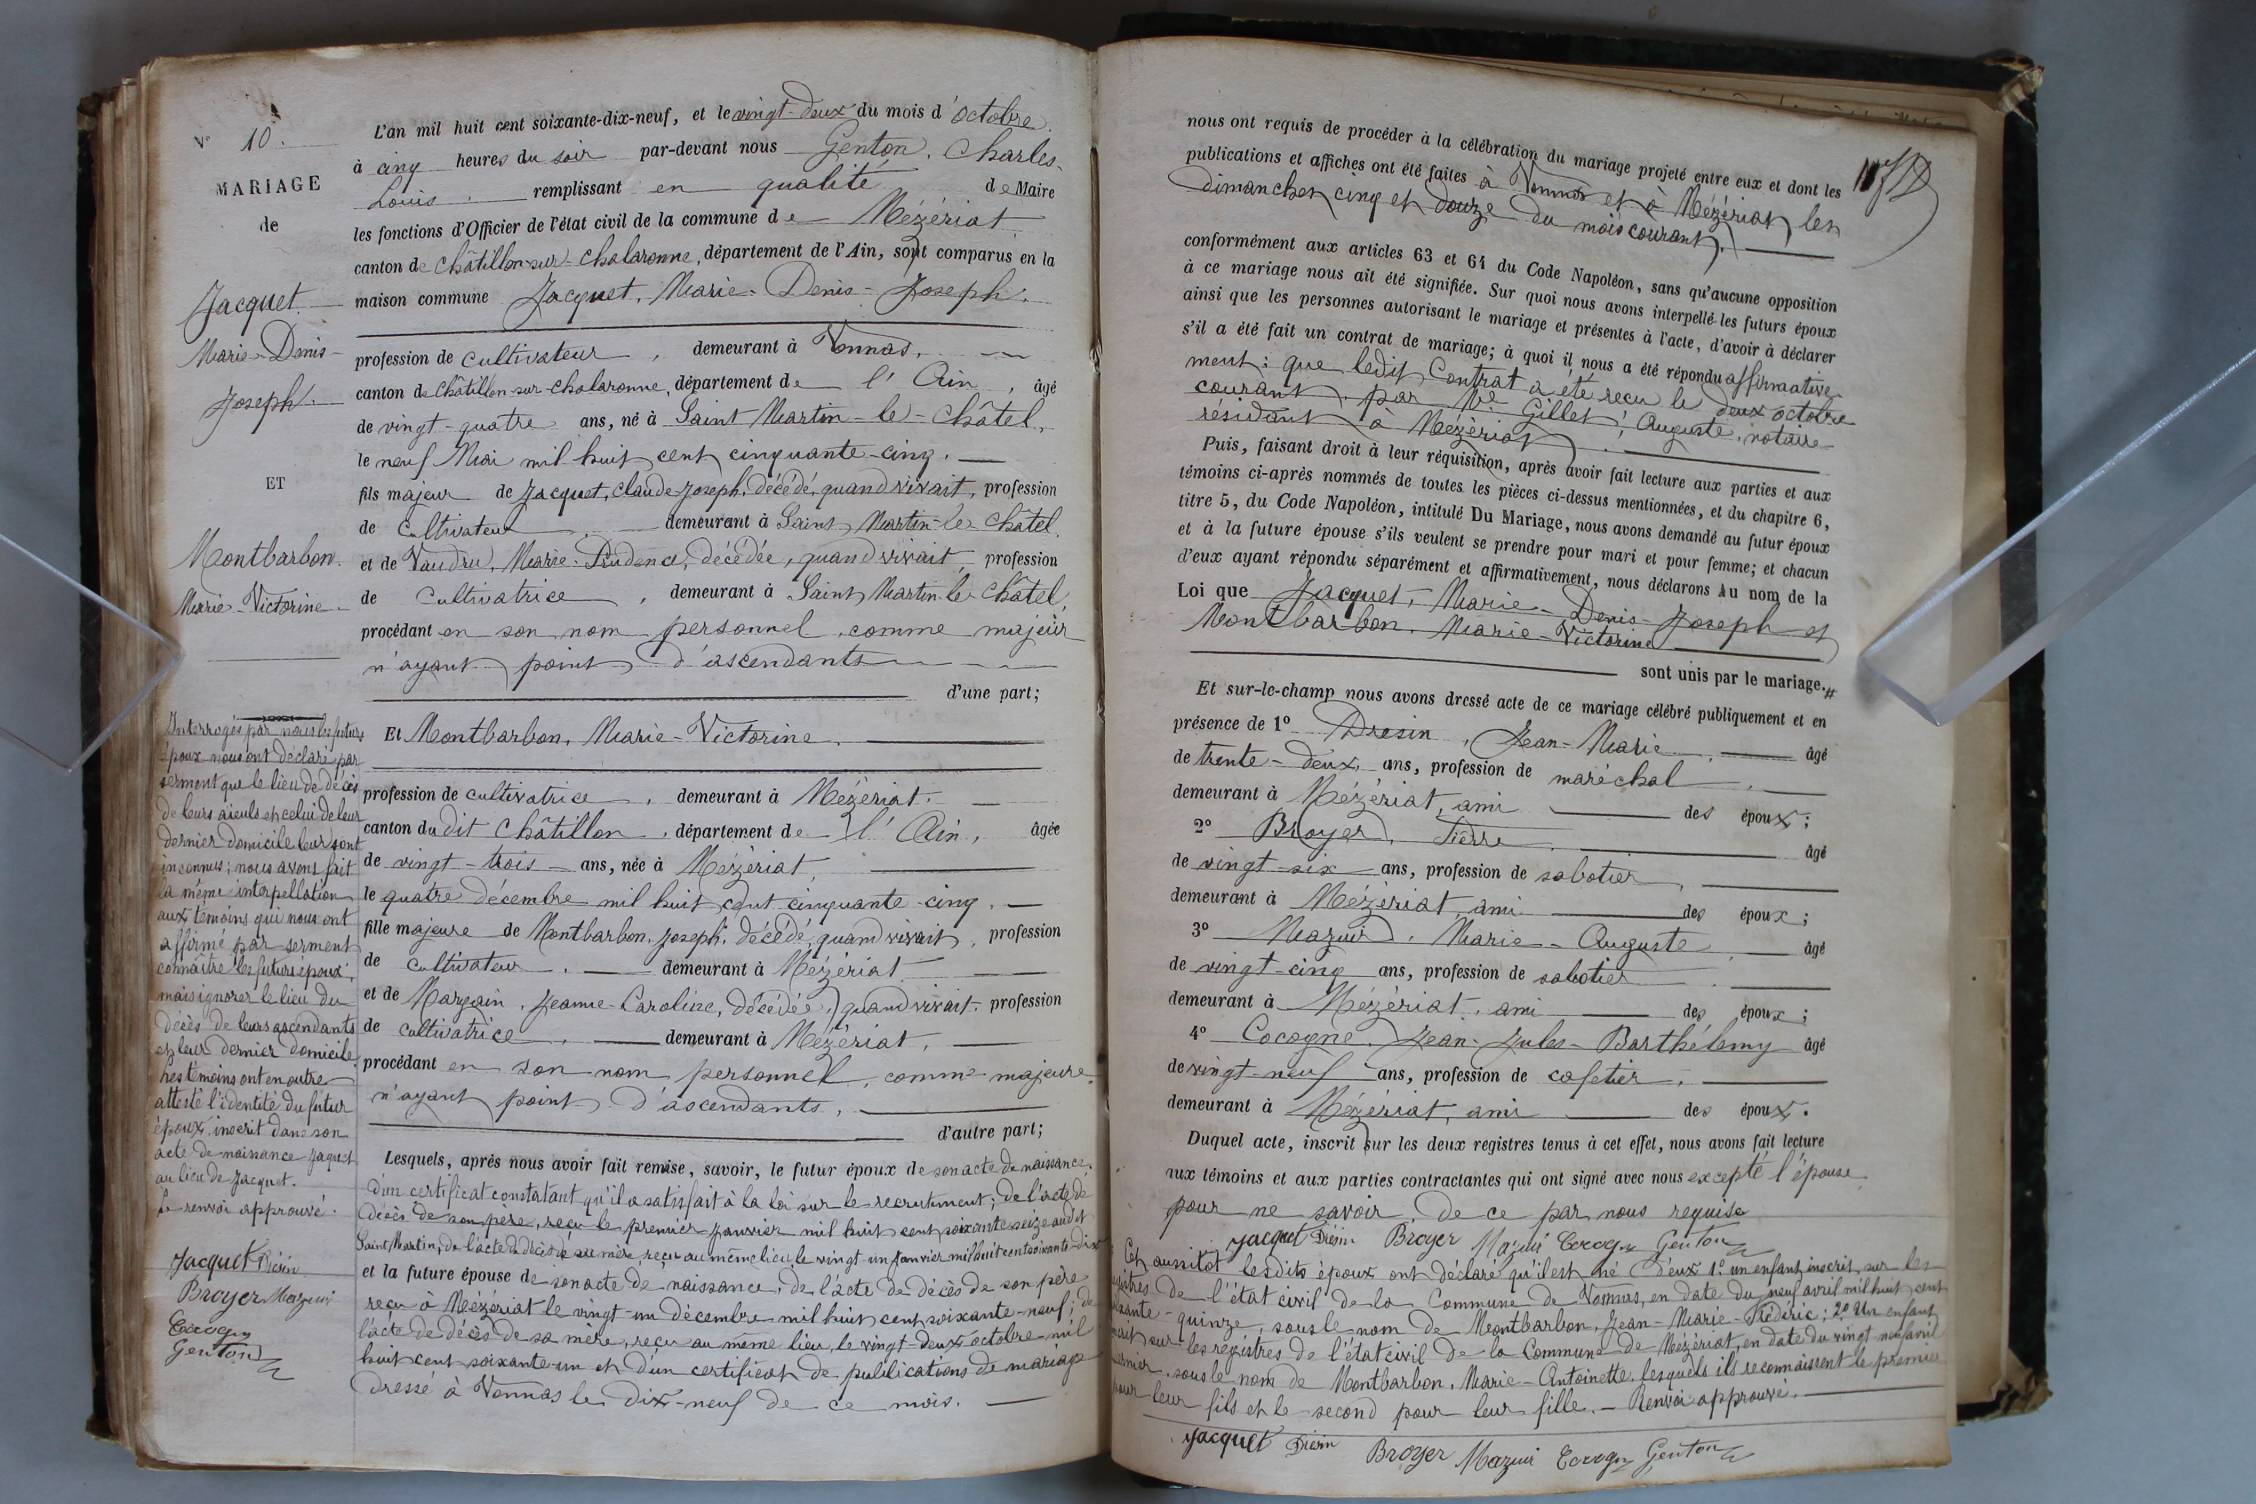 N° 10.
MARIAGE
de
Jacquet.
Marie-Denis-
Joseph.
ET
Montbarbon.
Marie-Victorine
Interrogés par nous les futurs
époux nous ont déclaré par
serment que le lieu de décès
de leurs aieuls et celui de leur
dernier domicile leur sont
inconnus; nous avons fait
la même interpellation
aux témoins qui nous ont
affirmé par serment
connaître les futurs époux,
mais ignorer le lieu du
décès de leurs ascendants
et leur dernier domicile.
Les témoins ont en outre
attesté l'identité du futur
époux, inscrit dans son
acte de naissance Jaquet
au lieu de Jacquet.
Le renvoi approuvé.
Jacquet Drésin
Broyer Mazuir
Cocogne
Genton
L'an mil huit cent soixante-dix-neuf, et le vingt-deux du mois d'octobre.
à cinq heures du soir par-devant nous Genton, Charles-
Louis remplissant en qualité de Maire
les fonctions d'Officier de l'état civil de la commune de Mézériat
canton de Châtillon-sur-Chalaronne, département de l'Ain, sont comparus en la
maison commune Jacquet, Marie-Denis-Joseph.
profession de cultivateur, demeurant à Vonnas,
canton de Châtillon-sur-Chalaronne, département de l'Ain, âgé
de vingt-quatre ans, né à Saint Martin-le-Châtel,
le neuf Mai mil huit cent cinquante-cinq.
fils majeur de Jacquet, Claude Joseph, décédé, quand vivait, profession
de cultivateur demeurant à Saint Martin-le-Châtel.
et de Vaudru, Marie-Prudence, décédée, quand vivait, profession
de cultivatrice, demeurant à Saint Martin-le-Châtel,
procédant en son nom personnel, comme majeur
n'ayant point d'ascendants
d'une part;
Et Montbarbon, Marie-Victorine.
profession de cultivatrice, demeurant à Mézériat.
canton dudit Châtillon, département de l'Ain, âgée
de vingt-trois ans, née à Mézériat,
le quatre décembre mil huit cent cinquante-cinq.
fille majeure de Montbarbon, Joseph, décédé, quand vivait, profession
de cultivateur, demeurant à Mézériat
et de Margain, Jeanne-Caroline, décédée, quand vivait, profession
de cultivatrice, demeurant à Mézériat,
procédant en son nom personnel, comme majeure
n'ayant point d'ascendants,
d'autre part;
Lesquels, après nous avoir fait remise, savoir, le futur époux de son acte de naissance,
d'un certificat constatant qu'il a satisfait à la loi sur le recrutement; de l'acte de
décès de son père, reçu le premier Janvier mil huit cent soixante seize audit
Saint Martin; de l'acte de décès de sa mère, reçu au même lieu, le vingt-un Janvier mil huit cent soixante-dix
et la future épouse de son acte de naissance, de l'acte de décès de son père
reçu à Mézériat le vingt-un décembre mil huit cent soixante-neuf; de
l'acte de décès de sa mère, reçu au même lieu, le vingt-deux octobre mil
huit cent soixante-un et d'un certificat de publications de mariage
dressé à Vonnas le dix-neuf de ce mois.
nous ont requis de procéder à la célébration du mariage projeté entre eux et dont les
publications et affiches ont été faites à Vonnas et à Mézériat les
dimanches cinq et douze du mois courant.
conformément aux articles 63 et 64 du Code Napoléon, sans qu'aucune opposition
à ce mariage nous ait été signifiée. Sur quoi nous avons interpellé les futurs époux
ainsi que les personnes autorisant le mariage et présentes à l'acte, d'avoir à déclarer
s'il a été fait un contrat de mariage; à quoi il nous a été répondu affirmative-
ment: que ledit Contrat a été reçu le deux octobre
courant par Me Gillet, Auguste, notaire
résidant à Mézériat.
Puis, faisant droit à leur réquisition, après avoir fait lecture aux parties et aux
témoins ci-après nommés de toutes les pièces ci-dessus mentionnées, et du chapitre 6,
titre 5, du Code Napoléon, intitulé Du Mariage, nous avons demandé au futur époux
et à la future épouse s'ils veulent se prendre pour mari et pour femme; et chacun
d'eux ayant répondu séparément et affirmativement, nous déclarons Au nom de la
Loi que Jacquet, Marie-Denis-Joseph et
Montbarbon, Marie-Victorine
sont unis par le mariage.#
Et sur-le-champ nous avons dressé acte de ce mariage célébré publiquement et en
présence de 1° Dresin, Jean-Marie, âgé
de trente-deux ans, profession de maréchal
demeurant à Mézériat, ami des époux;
2° Broyer, Pierre. âgé
de vingt-six ans, profession de sabotier,
demeurant à Mézériat, ami des époux;
3° Mazuir, Marie-Auguste, âgé
de vingt-cinq ans, profession de sabotier
demeurant à Mézériat, ami des époux;
4° Cocogne, Jean-Jules-Barthélemy âgé
de vingt-neuf ans, profession de cafetier,
demeurant à Mézériat, ami des époux.
Duquel acte, inscrit sur les deux registres tenus à cet effet, nous avons fait lecture
aux témoins et aux parties contractantes qui ont signé avec nous excepté l'épouse
pour ne savoir, de ce par nous requise
Jacquet Drésin Broyer Mazuir Cocogne Genton
Et aussitôt lesdits époux ont déclaré qu'il est né d'eux 1° un enfant inscrit sur les
registres de l'état civil de la Commune de Vonnas, en date du neuf avril mil huit cent
soixante-quinze, sous le nom de Montbarbon, Jean-Marie-Frédéric; 2° Un enfant
inscrit sur les registres de l'état civil de la Commune de Mézériat, en date du vingt-neuf avril
dernier, sous le nom de Montbarbon, Marie-Antoinette, lesquels ils reconnaissent le premier
pour leur fils et le second pour leur fille. - Renvoi approuvé.
Jacquet Drésin Broyer Mazuir Cocogne Genton